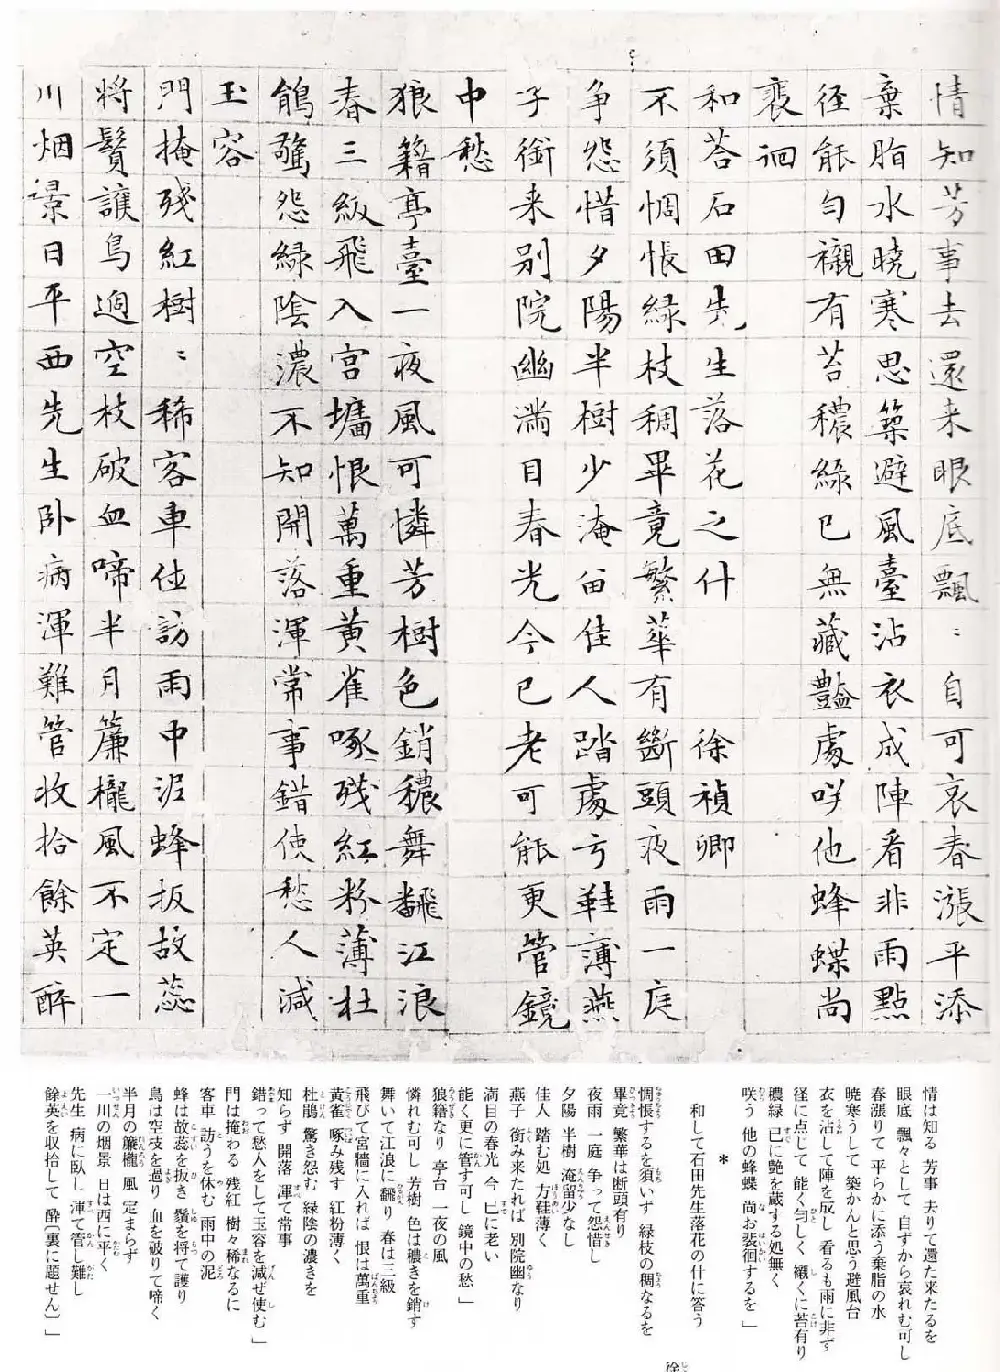 情知芳事去還来眼底飄〻自可哀春漲平添
棄脂水曉寒思築避風臺沾衣成陣看非雨點
径能匀襯有苔穠綠已無藏豔處咲他蜂蝶尚
裵徊
和荅石田先生落花之什 徐禎卿
不須惆悵綠枝稠畢竟繁華有斷頭夜雨一庭
争怨惜夕陽半樹少淹留佳人踏處弓鞋薄燕
子銜来別院幽滿目春光今已老可能更管鏡
中愁
狼籍亭臺一夜風可憐芳樹色銷穠舞翻江浪
春三級飛入宮墻恨萬重黃雀啄殘紅粉薄杜
鵑驚怨綠陰濃不知開落渾常事錯使愁人減
玉容
門掩殘紅樹〻稀客車住訪雨中泥蜂扳故蕊
將鬚護鳥過空枝破血啼半月簾櫳風不定一
川烟景日平西先生卧病渾難管收拾餘英醉
情は知る 芳事 去りて還た来たるを
眼底 飄々として 自ずから哀れむ可し
春漲りて 平らかに添う棄脂の水
暁寒うして 築かんと思う避風台
衣を沾して陣を成し 看るも雨に非ず
径に点じて 能く匀しく 襯くに苔有り
濃緑 已に艶を蔵する処無く
咲う 他の蜂蝶 尚お裴徊するを」
＊
和して石田先生落花の什に答う
惆悵するを須いず 緑枝の稠なるを
畢竟 繁華は断頭有り
夜雨 一庭 争って怨惜し
夕陽 半樹 淹留少なし
佳人 踏む処 方鞋薄く
燕子 銜み来たれば 別院幽なり
満目の春光 今 已に老い
能く更に管す可し 鏡中の愁」
狼籍なり 亭台 一夜の風
憐れむ可し 芳樹 色は穠きを銷す
舞いて江浪に 翻り 春は三級
飛びて宮牆に入れば 恨は萬重
黄雀 啄み残す 紅粉薄く
杜鵑 驚き怨む 緑陰の濃きを
知らず 開落 渾て常事
錯って愁人をして玉容を減ぜ使む」
門は掩わる 残紅 樹々稀なるに
客車 訪うを休む 雨中の泥
蜂は故蕊を抜き 鬚を将て護り
鳥は空枝を過り 血を破りて啼く
半月の簾櫳 風 定まらず
一川の烟景 日は西に平く
先生 病に臥し 渾て管し難し
餘英を収拾して 酔〔裏に題せん〕」